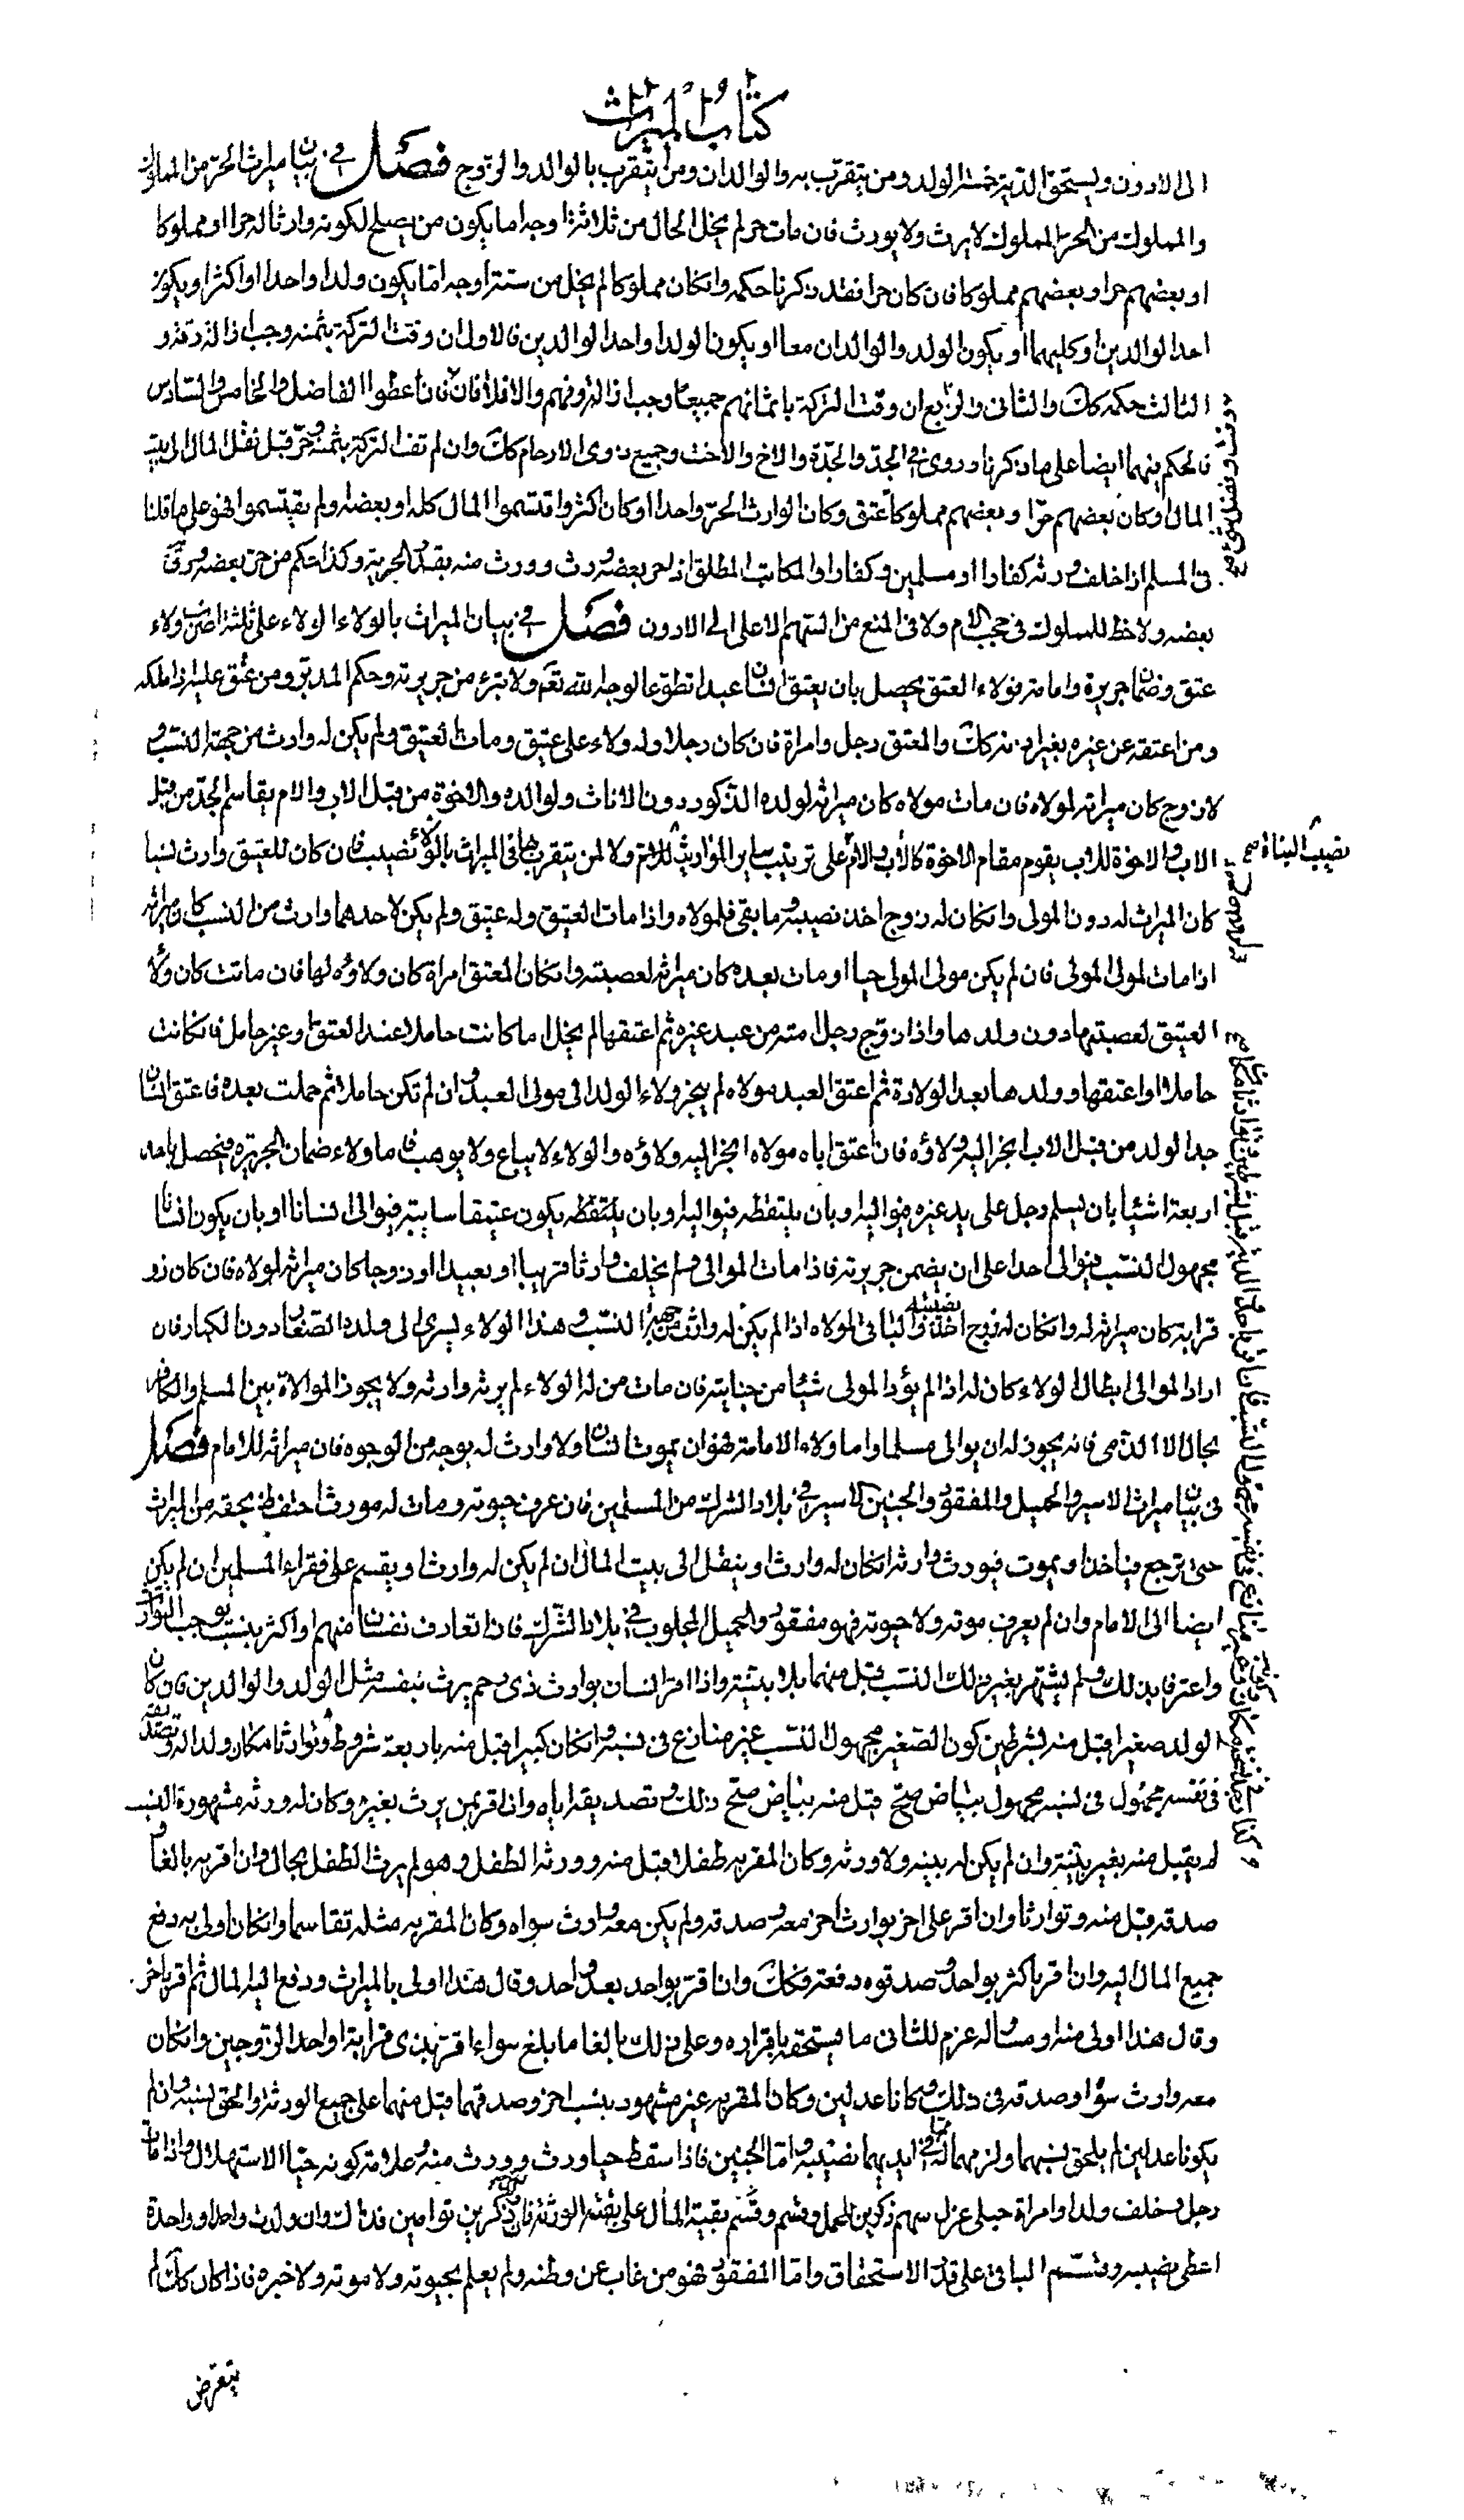 كتاب الميراث
الى الادون ويستحق الدية خمسة الولد ومن يتقرب به والوالدان ومن يتقرب بالوالد والزوج فصل في بيان ميراث الحر من المملوك
والمملوك من الحر المملوك لا يرث ولا يورث فان مات حر لم يخل الحال من ثلاثة اوجه اما يكون من يصلح لكونه وارثا له حرا او مملوكا
او بعضهم حرا وبعضهم مملوكا فان كان حرا فقد ذكرنا حكمه وانكان مملوكا لم يخل من ستة اوجه اما يكون ولدا واحدا او اكثر او يكون
احد الوالدين او كليهما او يكون الولد والوالدان معا او يكون الولد واحد الوالدين فالاول ان وفت التركة بثمنه وجب
الثالث حكمه كك والثاني والرابع ان وفت التركة باثمانهم جميعا وجب والا فلا فان اعطوا الفاضل والخامس والسادس
فالحكم فيهما ايضا على ما ذكرنا وروى في الجد والجدة والاخ والاخت وجميع ذوى الارحام كك وان لم تف التركة بثمنه وحر قبل نقل المال الى بيت
المال او كان بعضهم حرا وبعضهم مملوكا عتق وكان الوارث الحر واحدا او كان اكثر واقتسموا المال كله او بعضه ولم يقتسموا فهو على ما قلنا
في المسلم اذا خلف ورثة كفارا او مسلمين وكفارا والمكاتب المطلق اذا حر بعضه ورث وورث منه بقدر الحرية وكذا حكم من حر بعضه ورق
بعضه ولا حظ للمملوك في حجب الام ولا في المنع من السهم الاعلى الى الادون فصل في بيان الميراث بالولاء الولاء على ثلثة اضرب ولاء
عتق وضمان جريرة وامامة فولاء العتق يحصل بان يعتق انسان عبدا تطوعا لوجه الله تعالى ولا تبرء من جريرته وحكم المدبر ومن عتق عليه اذا ملكه
ومن اعتقه عن غيره بغير اذنه كك والمعتق رجل وامراة فان كان رجلا وله ولاء على عتيق ومات العتيق ولم يكن له وارث من جهة النسب و
لا زوج كان ميراثه لمولاه فان مات مولاه كان ميراثه لولده الذكور دون الاناث ولوالده والاخوة من قبل الاب والام يقاسم الجد من قبل
الاب والاخوة للاب يقوم مقام الاخوة كالاب والام على ترتيب ساير المواريث ولا لمن يتقرب بها في الميراث بالولاء نصيب فان كان للعتيق وارث نسبا
كان الميراث له دون المولى وانكان له زوج اخذ نصيبه وما بقى فلمولاه واذا مات العتيق وله عتيق ولم يكن لاحدهما وارث من النسب كان ميراثه
اذا مات لمولى المولى فان لم يكن مولى المولى حيا او مات بعده كان ميراثه لعصبته وانكان المعتق امراة كان ولاؤه لها فان ماتت كان ولاء
العتيق لعصبتها دون ولدها واذا زوج رجل امته من عبد غيره ثم اعتقها لم يخل اما كانت حاملا عند العتق او غير حامل فانكانت
حاملا او اعتقها وولدها بعد الولادة ثم اعتق العبد مولاه لم ينجر ولاء الولد الى مولى العبد وان لم تكن حاملا ثم حملت بعده فاعتق انسان
جد الولد من قبل الاب انجر اليه ولاؤه فان اعتق اباه مولاه انجر اليه ولاؤه والولاء لا يباع ولا يوهب فاما ولاء ضمان الجريرة فيحصل باحد
اربعة اشياء بان يسلم رجل على يد غيره فيوالیه وبان يلتقطه فيواليه وبان يكون عتيقا سايبة فيوالى انسانا او بان يكون انسان
مجهول النسب فيوالى احدا على ان يضمن جريرته فاذا مات الموالى ولم يخلف وارثا قريبا او بعيدا او زوجا كان ميراثه لمولاه فان كان ذو
قرابة كان ميراثه له وانكان له زوج اخذ نصيبه والباقي لمولاه اذا لم يكن له وارث من جهة النسب وهذا الولاء يسرى الى ولده الصغار دون الكبار فان
اراد الموالى ابطال الولاء كان له اذا لم يؤد المولى شيئا من جنايته فان مات من له الولاء لم يرثه وارثه ولا يجوز الموالاة بين المسلم والكافر
بحال الا الذمي فانه يجوز له ان يوالى مسلما واما ولاء الامامة فهو ان يموت انسان ولا وارث له بوجه من الوجوه فان ميراثه للامام فصل
في بيان ميراث الاسير والحميل والمفقود والجنين الاسير في بلاد الشرك من المسلمين فان عرف حيوته ومات له مورث احتفظ بحقه من الميراث
حتى يرجع فياخذ او يموت فيورث وارثه انكان له وارث او ينقل الى بيت المال ان لم يكن له وارث او يقسم على فقراء المسلمين ان لم يكن
ايضا الى الامام وان لم يعرف موته ولا حيوته فهو مفقود والحميل المجلوب في بلاد الشرك فان تعارف نفسان منهم او اكثر بنسب يوجب التوارث
واعترفا بذلك ولم يشتهر بغير ذلك النسب قبل منهما بلا بينة واذا اقر انسان بوارث ذى رحم يرث بنفسه مثل الولد والوالدين فان كان
الولد صغيرا قبل منه بشرطين كون الصغير مجهول النسب غير منازع في نسبه وانكان كبيرا قبل منه باربعة شروط
في نفسه مجهول في نسبه مجهول بياض صح قبل منه بياض صح ذلك وتصديقه اياه وان اقر بمن يرث بغيره وكان له ورثة مشهورة النسب
لم يقبل منه بغير بينة وان لم يكن له بينه ولا ورثه وكان المقر به طفلا قبل منه وورثه الطفل وهو لم يرث الطفل بحال وان اقر به بالغا و
صدقه قبل منه وتوارثا وان اقر على اخر بوارث اخر معه وصدقه ولم يكن معه وارث سواه وكان المقر به مثله تقاسما وانكان اولى به دفع
جميع المال اليه وان اقر باكثر بواحد وصدقوه دفعة فكك وان اقر بواحد بعد واحد وقال هذا اولى بالميراث ودفع اليه المال ثم اقر باخر
وقال هذا اولى منه او مساو له غرم للثاني ما يستحقه باقراره وعلى ذلك بالغا ما بلغ سواء اقر بذى قرابة او احد الزوجين وانكان
معه وارث سواه وصدقه في ذلك وكانا عدلين وكان المقر به غير مشهور بنسب اخر وصدقهما قبل منهما على جميع الورثة والحق بنسبه وان لم
يكونا عدلين لم يلحق نسبهما ولزمهما في ايديهما نصيبه واما الجنين فاذا سقط حيا ورث وورث منه وعلامة كونه حيا الاستهلال واذا مات
رجل وخلف ولدا وامراة حبلى عزل سهم ذكرين للحمل وقسم بقية المال على بقية الورثة فان ذكرين توامين فذاك وان ولدت واحدا وواحدة
اعطى نصيبه وقسم الباقي على قدر الاستحقاق واما المفقود فهو من غاب عن وطنه ولم يعلم بحيوته ولا موته ولا خبره فاذا كان كك لم
يتعرض
نصيب البناة صح